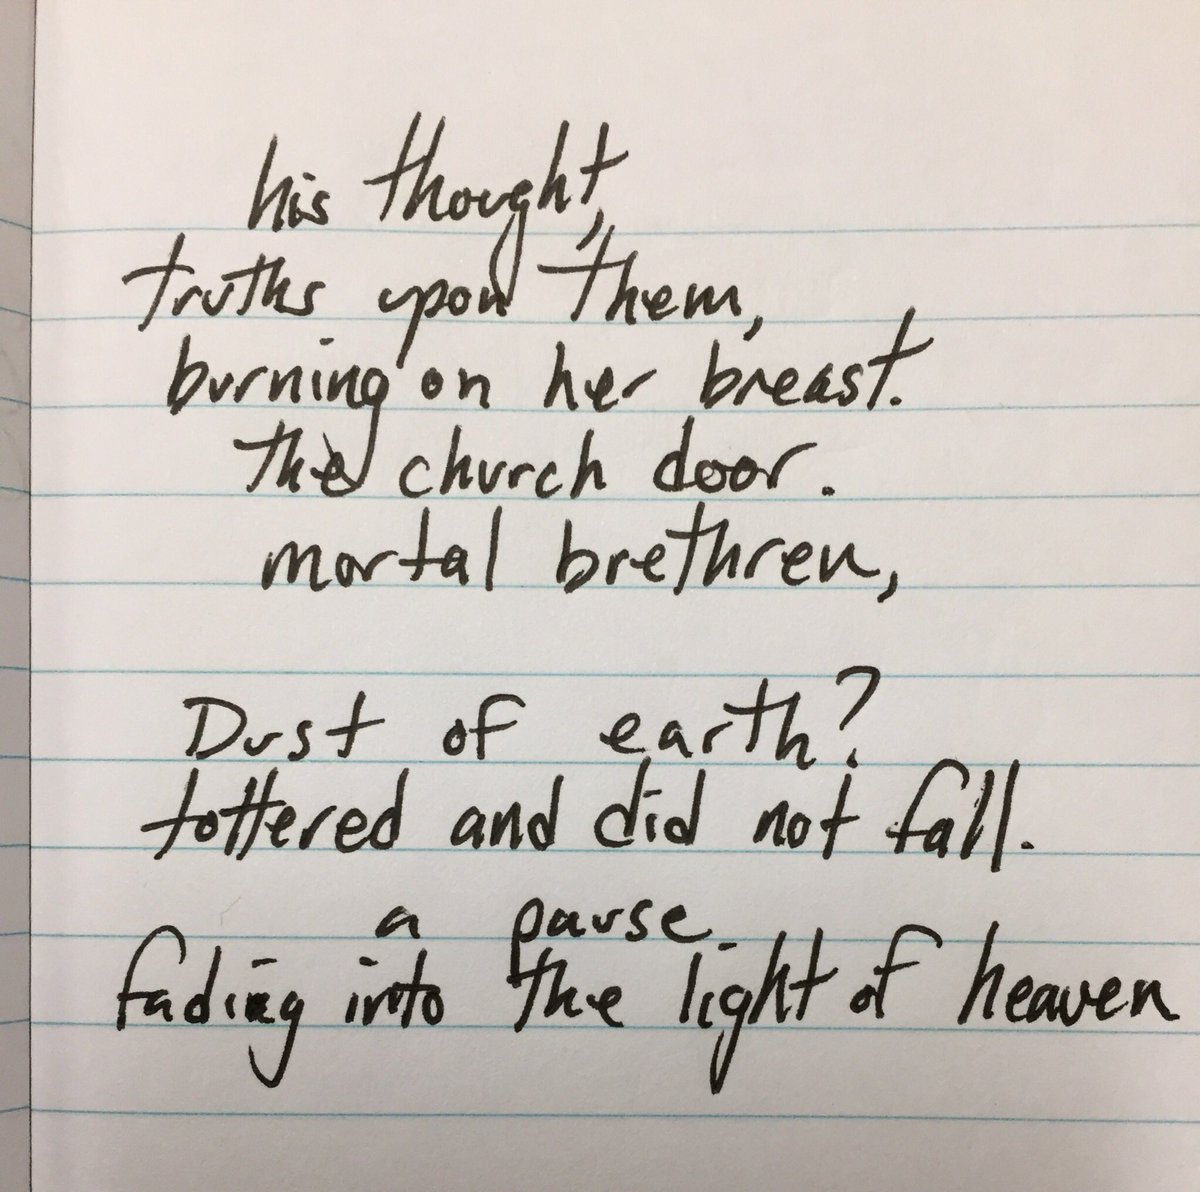 his thought,
truths upon them,
burning on her breast.
the church door.
mortal brethren,
Dust of earth?
tottered and did not fall.
a pause
fading into the light of heaven